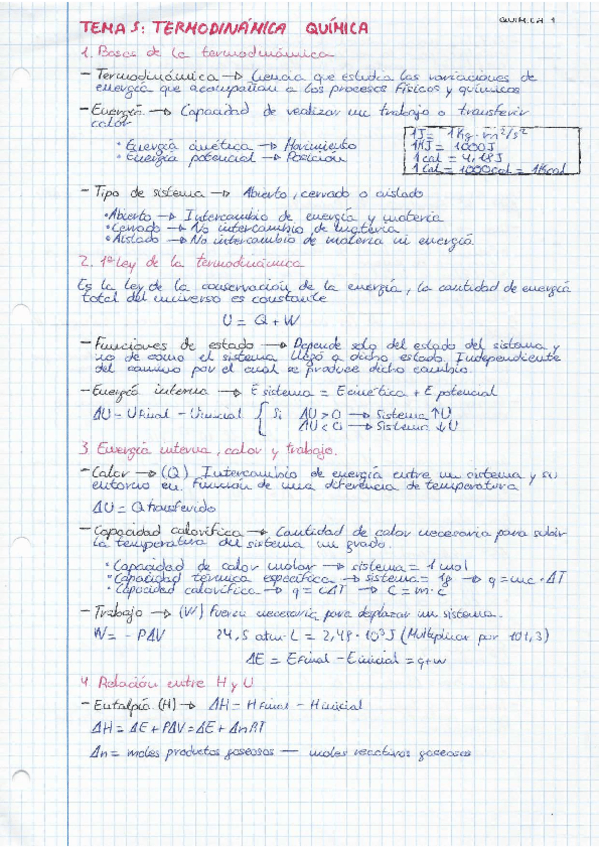 QUÍMICA 1
TEMA 5: TERMODINÁMICA QUÍMICA
1. Bases de la termodinámica
- Termodinámica → Ciencia que estudia las variaciones de
energía que acompañan a los procesos físicos y químicos
- Energía → Capacidad de realizar un trabajo o transferir
calor
• Energía cinética → Movimiento
• Energía potencial → Posición
1J = 1Kg · m²/s²
1KJ = 1000J
1 cal = 4,18J
1 Cal = 1000cal = 1Kcal
- Tipo de sistema → Abierto, cerrado o aislado
• Abierto → Intercambio de energía y materia
• Cerrado → No intercambio de materia
• Aislado → No intercambio de materia ni energía
2. 1ª Ley de la termodinámica
Es la ley de la conservación de la energía, la cantidad de energía
total del universo es constante
U = Q + W
- Funciones de estado → Depende solo del estado del sistema y
no de como el sistema llegó a dicho estado. Independiente
del camino por el cual se produce dicho cambio.
- Energía interna → E sistema = E cinética + E potencial
ΔU = U final - U inicial { Si ΔU > 0 → Sistema ↑U
ΔU < 0 → Sistema ↓U
3. Energía interna, calor y trabajo.
- Calor → (Q) Intercambio de energía entre un sistema y su
entorno en función de una diferencia de temperatura
ΔU = Q transferido
- Capacidad calorífica → Cantidad de calor necesaria para subir
la temperatura del sistema un grado.
• Capacidad de calor molar → sistema = 1 mol
• Capacidad térmica específica → sistema = 1g → q = mc · ΔT
• Capacidad calorífica → q = cΔT → C = m·c
- Trabajo → (W) Fuerza necesaria para desplazar un sistema.
W = - PΔV 24,5 atm·L = 2,48 · 10³J (Multiplicar por 101,3)
ΔE = E final - E inicial = q + w
4 Relación entre H y U
- Entalpía (H) → ΔH = H final - H inicial
ΔH = ΔE + PΔV = ΔE + ΔnRT
Δn = moles productos gaseosos — moles reactivos gaseosos